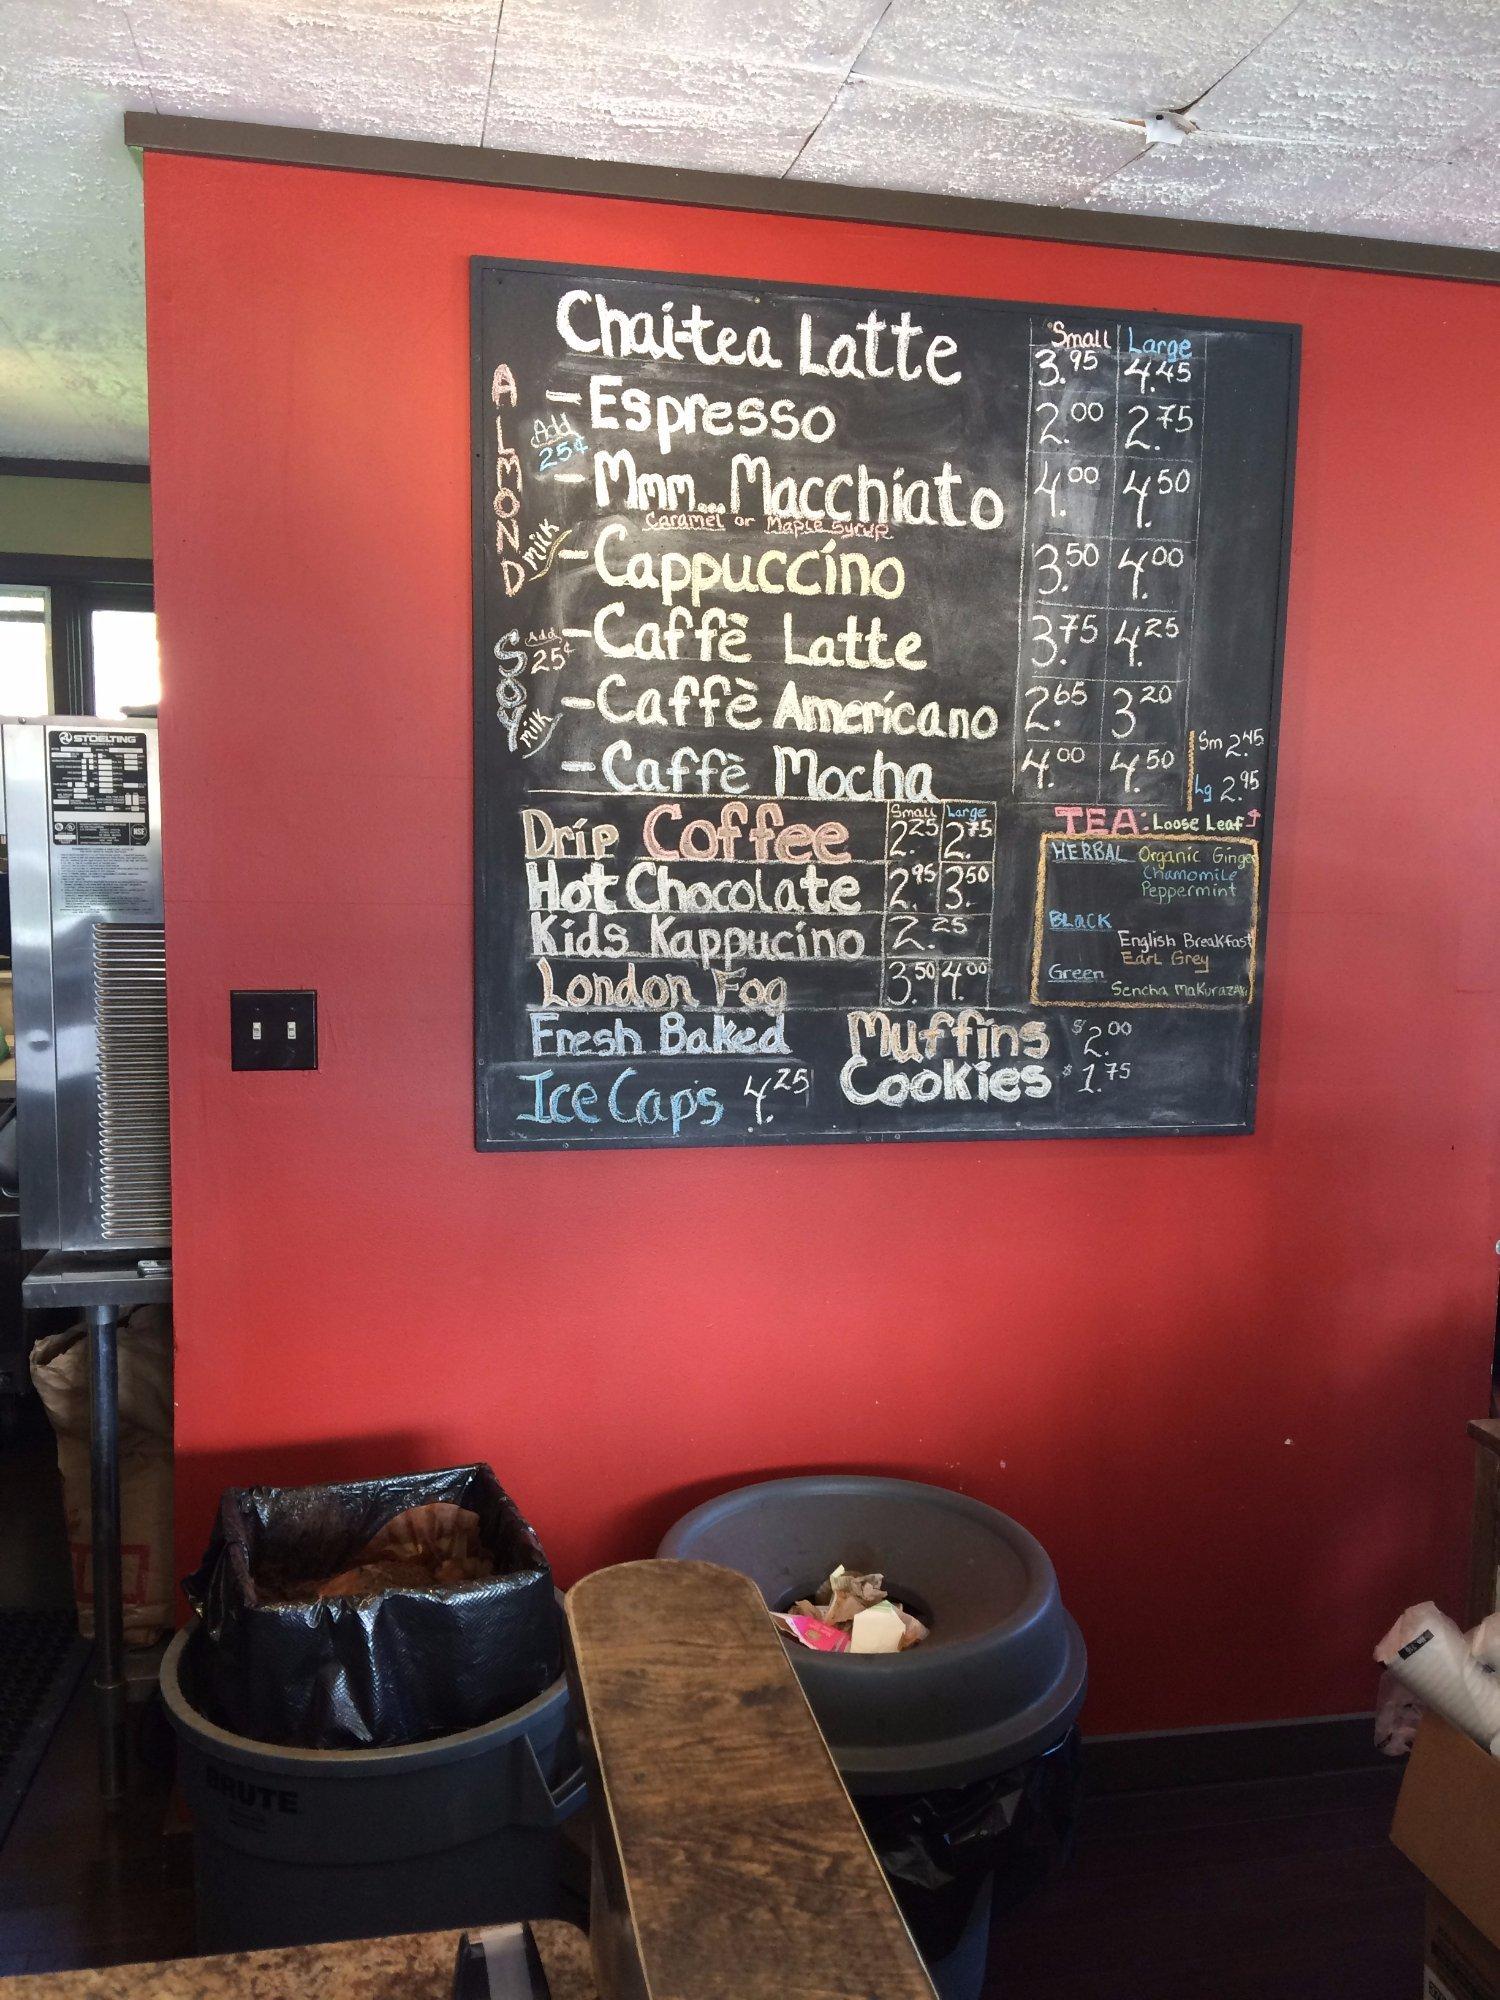 Small Large
Chai-tea Latte 3.95 4.45
-Espresso 2.00 2.75
-Mmm...Macchiato 4.00 4.50
Caramel or Maple Syrup
-Cappuccino 3.50 4.00
-Caffè Latte 3.75 4.25
-Caffè Americano 2.65 3.20
-Caffè Mocha 4.00 4.50
ALMOND milk
Add 25¢
SOY milk
Add 25¢
Small Large
Drip Coffee 2.25 2.75
Hot Chocolate 2.95 3.50
Kids Kappucino 2.25
London Fog 3.50 4.00
Fresh Baked Muffins $2.00
Cookies $1.75
Ice Cap's 4.25
Sm 2.45
Lg 2.95
TEA: Loose Leaf
HERBAL Organic Ginger
Chamomile
Peppermint
BLACK
English Breakfast
Earl Grey
Green
Sencha Makurazaki
STOELTING
NSF
BRUTE